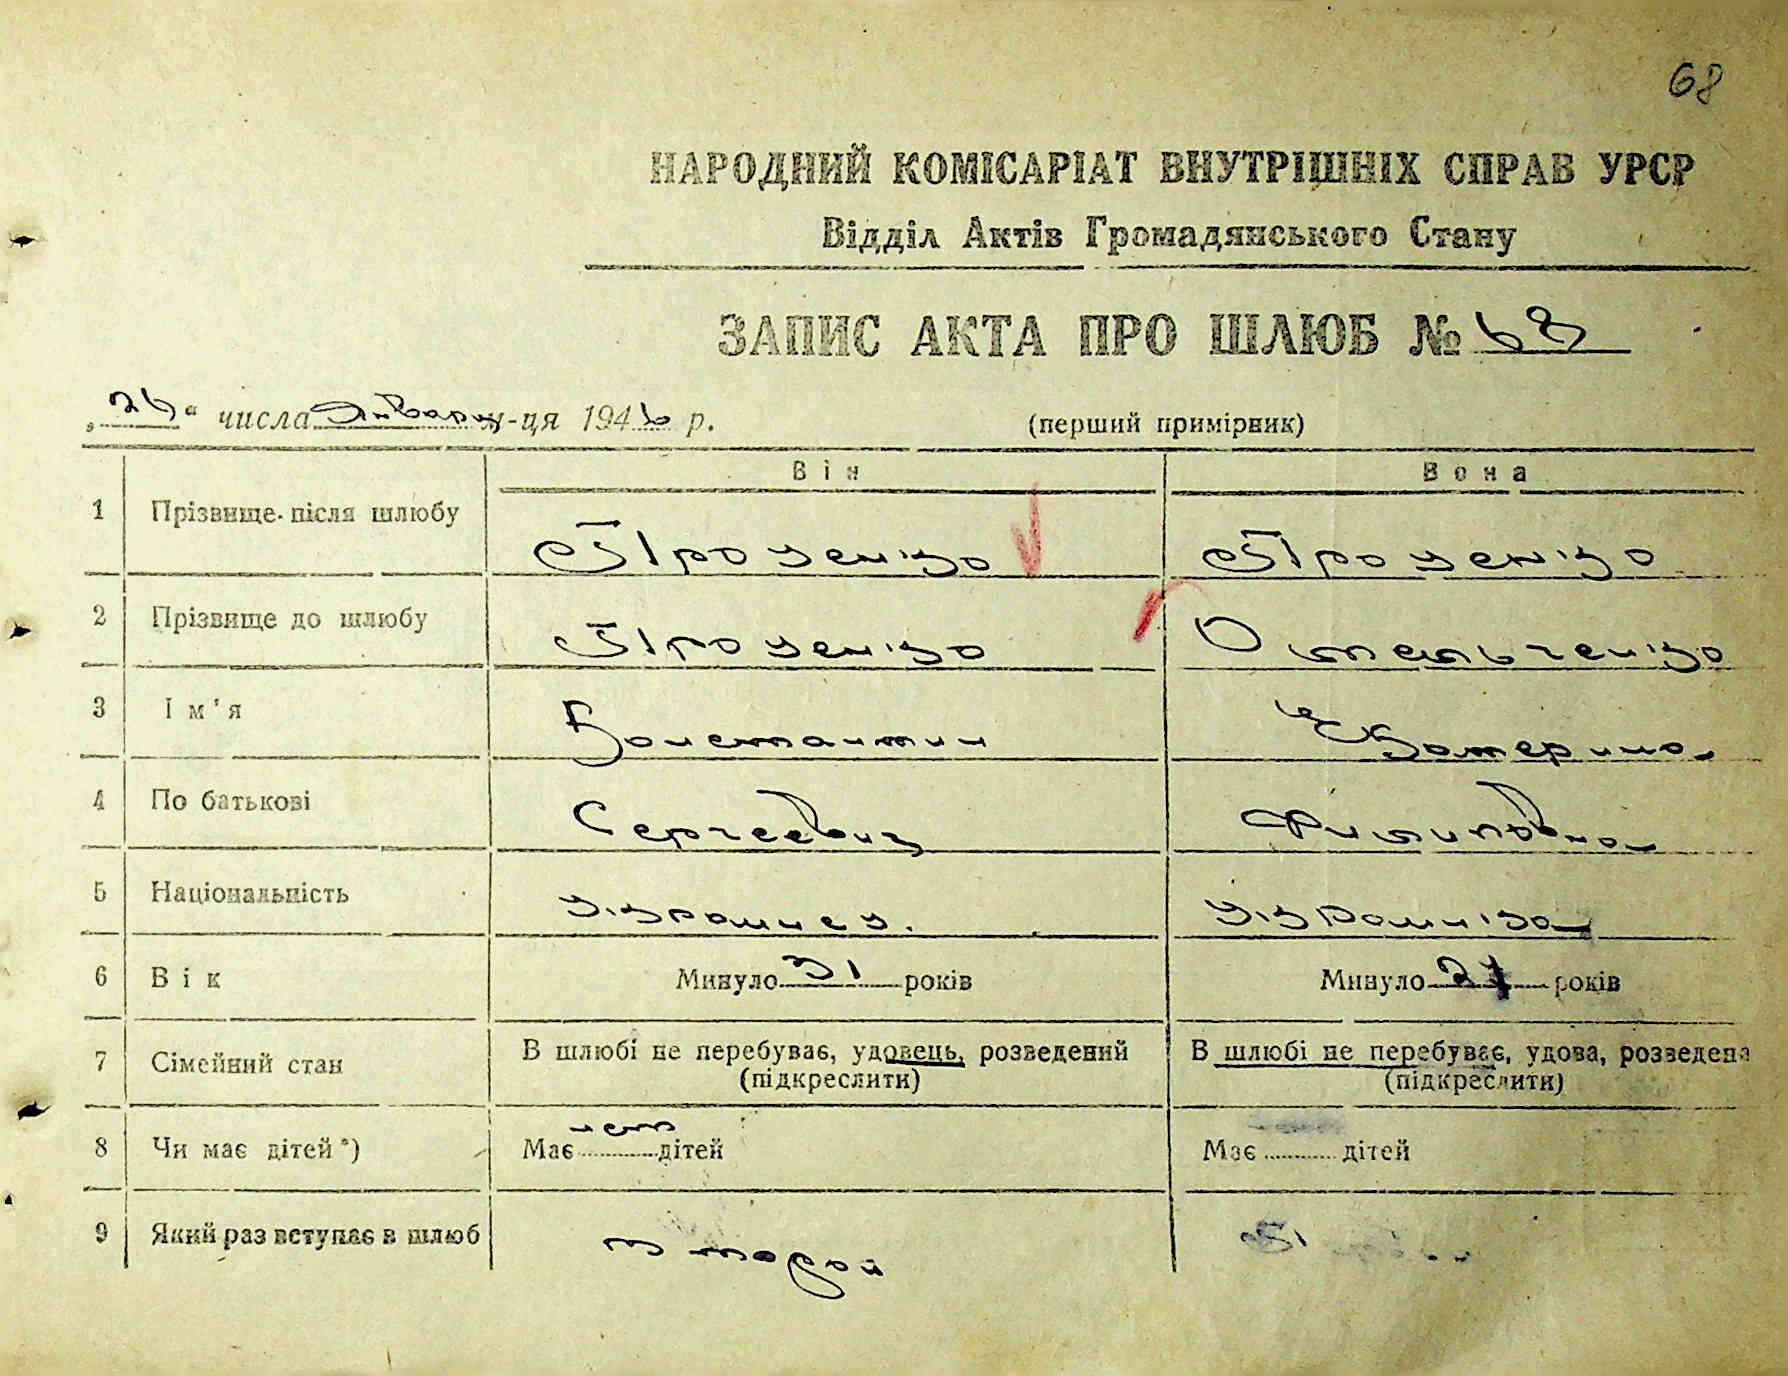 68
НАРОДНИЙ КОМІСАРІАТ ВНУТРІШНІХ СПРАВ УРСР
Відділ Актів Громадянського Стану
ЗАПИС АКТА ПРО ШЛЮБ № 68
„26“ числа Января м-ця 1946 р. (перший примірник)
Він Вона
1 Прізвище після шлюбу Проценко Проценко
2 Прізвище до шлюбу Проценко Омельченко
3 Ім'я Константин Екатерина
4 По батькові Сергеевич Филиповна
5 Національність украинец. украинка
6 Вік Минуло 31 років Минуло 27 років
7 Сімейний стан В шлюбі не перебуває, удовець, розведений В шлюбі не перебуває, удова, розведена
(підкреслити) (підкреслити)
8 Чи має дітей *) Має нет дітей Має дітей
9 Який раз вступає в шлюб второй